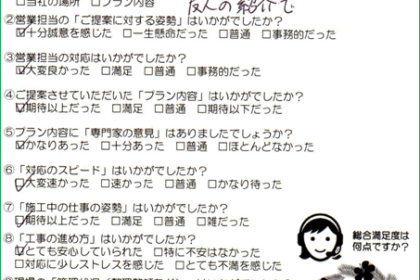 □当社の場所 □プラン内容 友人の紹介で
②営業担当の「ご提案に対する姿勢」はいかがでしたか？
☑十分誠意を感じた □一生懸命だった □普通 □事務的だった
③営業担当の対応はいかがでしたか？
☑大変良かった □満足 □普通 □事務的だった
④ご提案させていただいた「プラン内容」はいかがでしたか？
☑期待以上だった □満足 □普通 □期待以下だった
⑤プラン内容に「専門家の意見」はありましたでしょうか？
☑かなりあった □十分あった □普通 □ほとんどなかった
⑥「対応のスピード」はいかがでしたか？
☑大変速かった □速かった □普通 □かなり待った
⑦「施工中の仕事の姿勢」はいかがでしたか？
☑期待以上だった □満足 □普通 □雑だった
⑧「工事の進め方」はいかがでしたか？
☑とても安心していられた □特に不安はなかった
□対応に少しストレスを感じた □とても不満を感じた
総合満足度は
何点ですか？